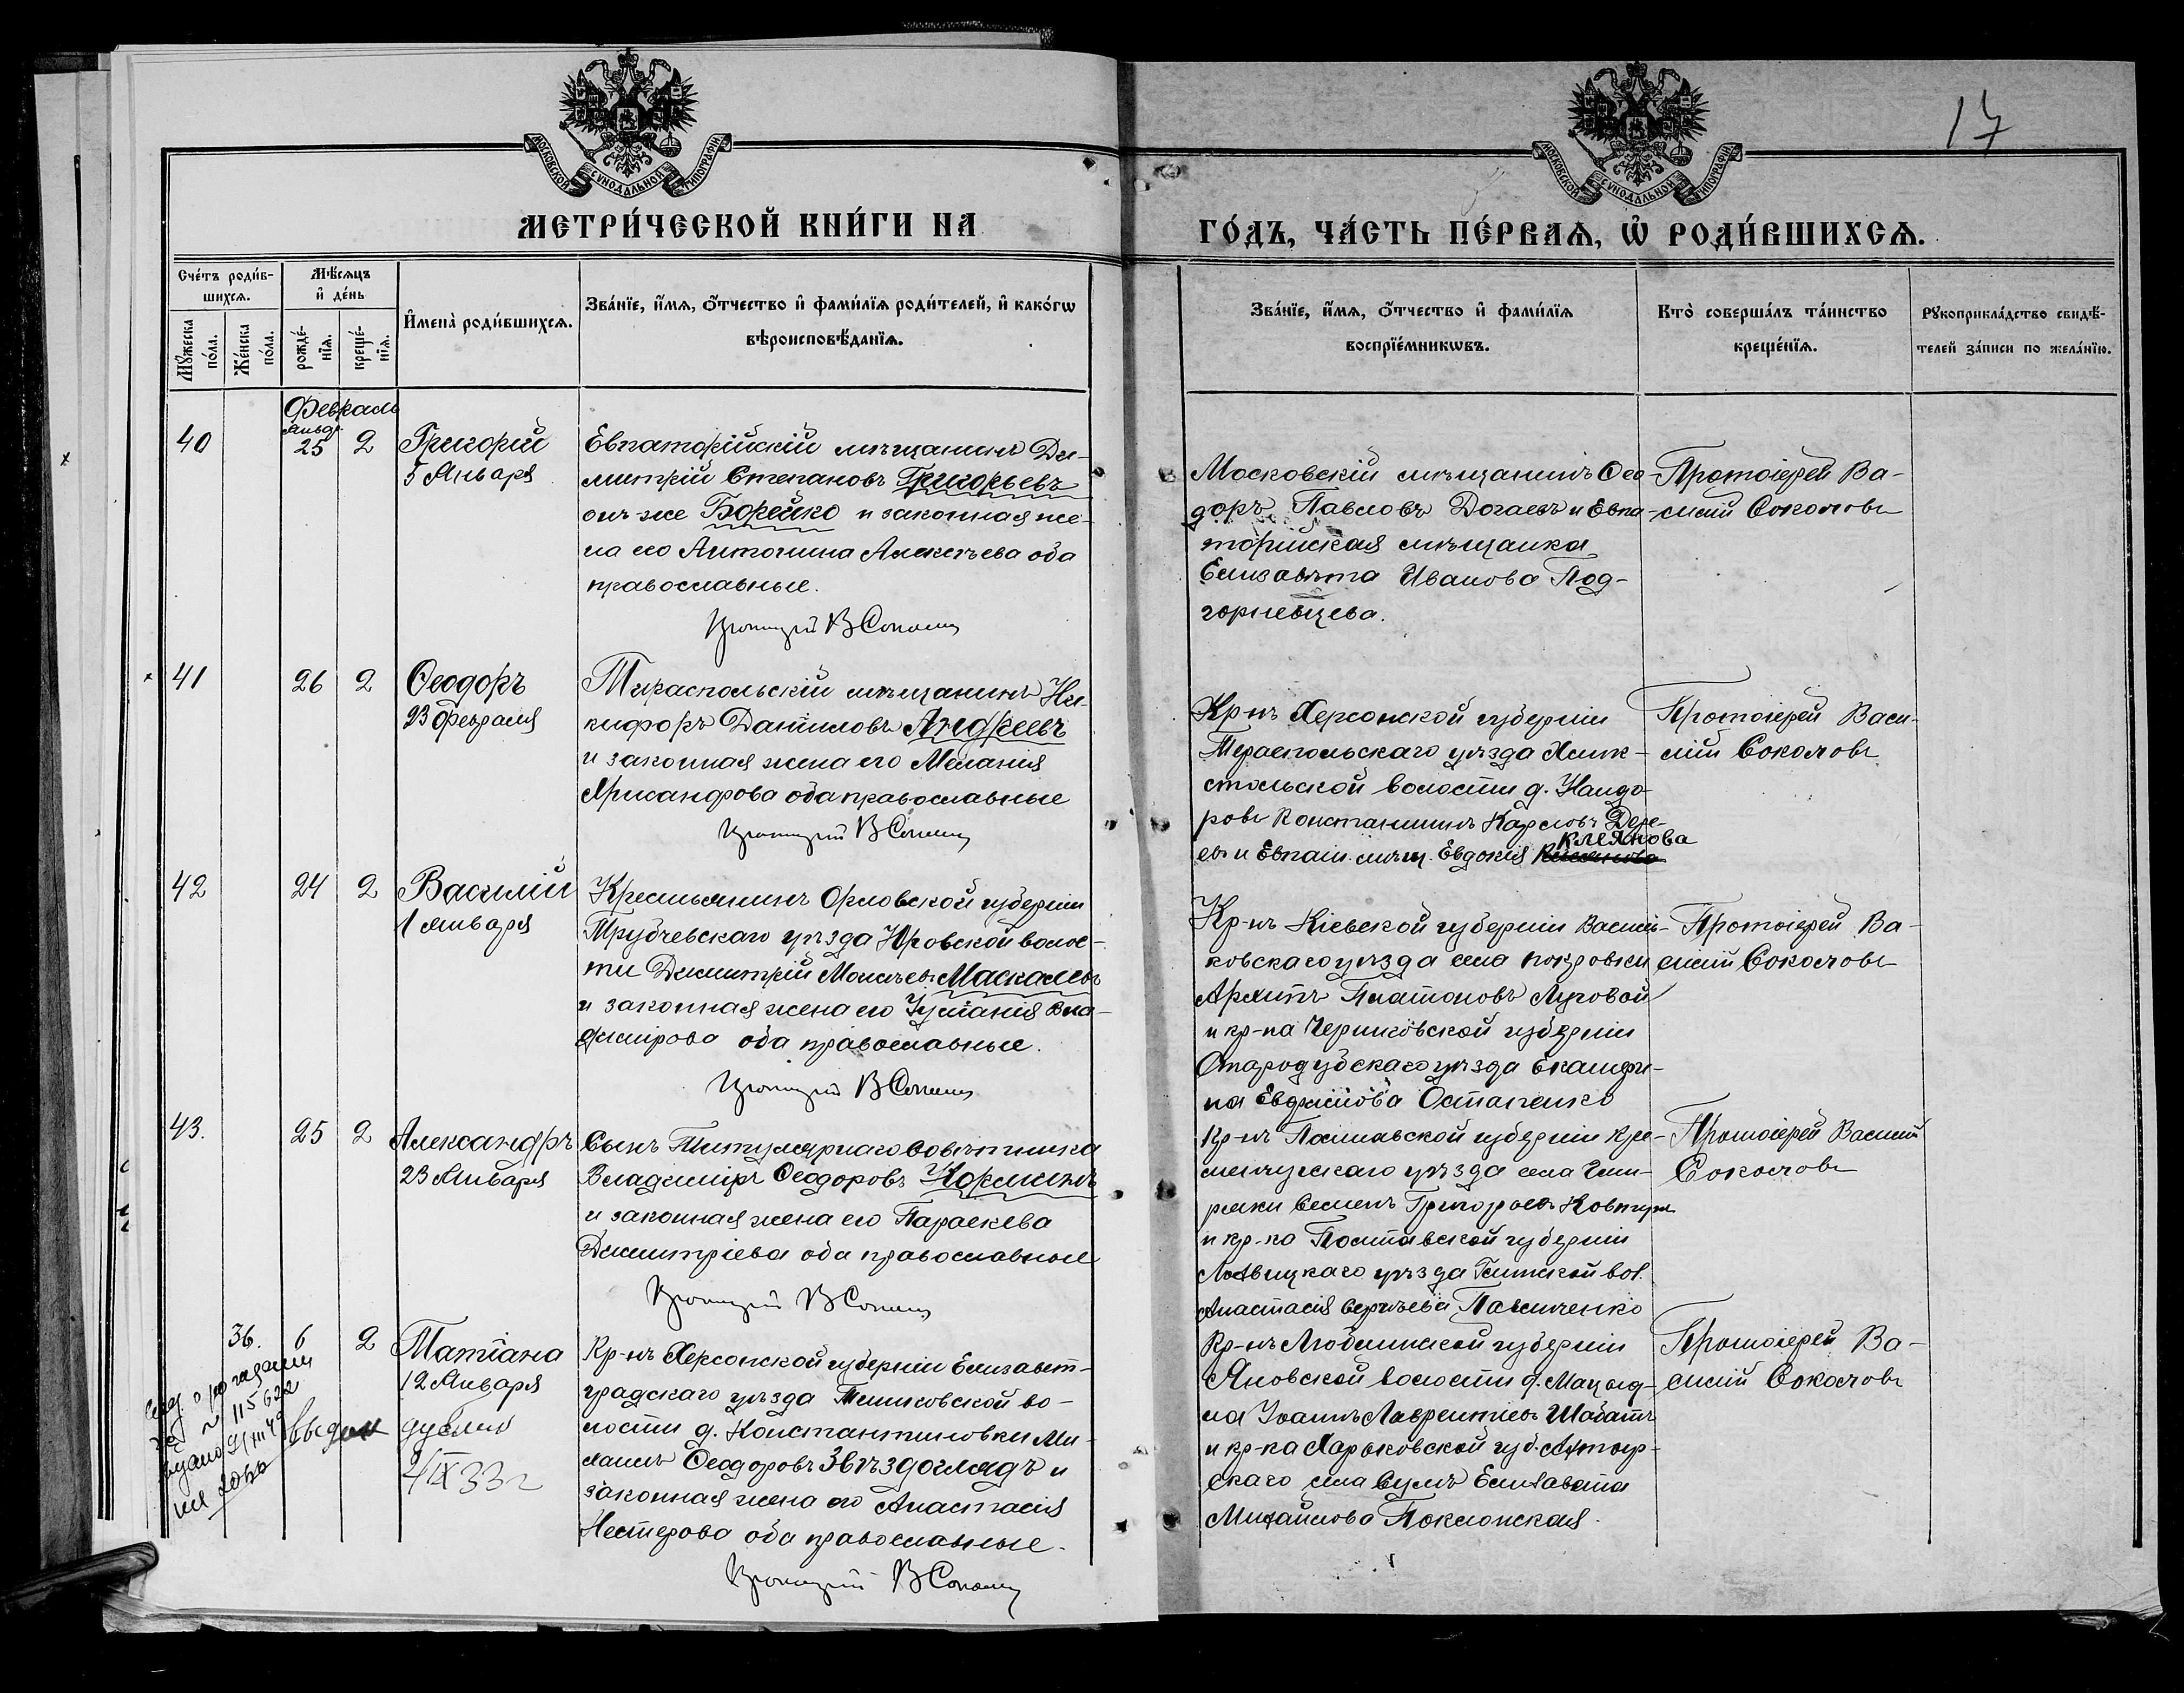 17
МОСКОВСКОЙ СѴНОДАЛЬНОЙ ТИПОГРАФІИ
МОСКОВСКОЙ СѴНОДАЛЬНОЙ ТИПОГРАФІИ
МЕТРИ́ЧЕСКОЙ КНИ́ГИ НА
ГО́ДЪ, ЧА́СТЬ ПЕ́РВАѦ, Ѽ РОДИ́ВШИХСѦ.
Сче́тъ роди́в-
шихсѧ.
Мѣ́сѧцъ
и҆ де́нь
Мꙋ́жеска
по́ла.
Же́нска
по́ла.
рожде́-
нїѧ.
креще́-
нїѧ.
И҆мена̀ роди́вшихсѧ.
Зва́нїе, и҆́мѧ, ѻ҆́тчество и҆ фами́лїѧ роди́телей, и҆ како́гѡ
вѣроисповѣ́данїѧ.
Зва́нїе, и҆́мѧ, ѻ҆́тчество и҆ фами́лїѧ
воспрїе́мникѡвъ.
Кто̀ соверша́лъ та́инство
креще́нїѧ.
Рꙋкоприкла́дство свидѣ́-
телей за́писи по жела́нїю.
Февраль
Январ.
40 25 2 Григорій
5 Января
Евпаторійскій мѣщанинъ Ди-
митрій Степановъ Григорьевъ
онъ-же Борейко и законная же-
на его Антонина Алексѣева оба
православные.
Протоіерей В Соколовъ
Московскій мѣщанинъ Ѳео-
доръ Павловъ Догаевъ и Евпа-
торійская мѣщанка
Елизавета Иванова Под-
горневцева.
Протоіерей Ва-
силій Соколовъ
41 26 2 Ѳеодоръ
23 Февраля
Тираспольскій мѣщанинъ Ни-
кифоръ Даниловъ Андреевъ
и законная жена его Меланія
Александрова оба православные
Протоіерей В Соколовъ
Кр-нъ Херсонской губерніи
Тераспольскаго уѣзда
стольской волости д.
ровъ Константинъ Карповъ
евъ и Евпат. мѣщ. Евдокія Клеянова
Протоіерей Васи-
лій Соколовъ
42 24 2 Василій
1 Января
Крестьянинъ Орловской губерніи
Трубчевскаго уѣзда Юровской волос-
ти Димитрій Моисѣевъ Маскалевъ
и законная жена его Іустинія Вла-
димірова оба православные.
Протоіерей В Соколовъ
Кр-нъ Кіевской губерніи Василь-
ковскаго уѣзда села Покровки
Архипъ Платоновъ Луговой
и кр-ка Черниговской губерніи
Стародубскаго уѣзда Екатери-
на Остапенко
Протоіерей Ва-
силій Соколовъ
43. 25 2 Александръ
23 Января
Сынъ Титулярнаго Совѣтника
Владиміръ Ѳеодоровъ Норминъ
и законная жена его Параскева
Димитріева оба православные
Протоіерей В Соколовъ
Кр-нъ Полтавской губерніи Кре-
менчугскаго уѣзда села
Семенъ Григорьевъ Ковтунъ
и кр-ка Полтавской губерніи
Лохвицкаго уѣзда Глинской вол.
Анастасія Сергѣева Павличенко
Протоіерей Василій
Соколовъ
36. 6 2 Татіана
12 Января
Кр-нъ Херсонской губерніи Елизавет-
градскаго уѣзда во-
лости д. Константиновки Ми-
хаилъ Ѳеодоровъ Звѣздоглядъ и
законная жена его Анастасія
Нестерова оба православные.
Протоіерей В Соколовъ
Кр-нъ Люблинской губерніи
Яновской волости д.
на Іоаннъ Лаврентіевъ Шабатъ
и кр-ка Харьковской губ. Ахтыр-
скаго села Елизавета
Михайлова Поклонская.
Протоіерей Ва-
силій Соколовъ
115622
выдан
дубл
4/IX 33 г